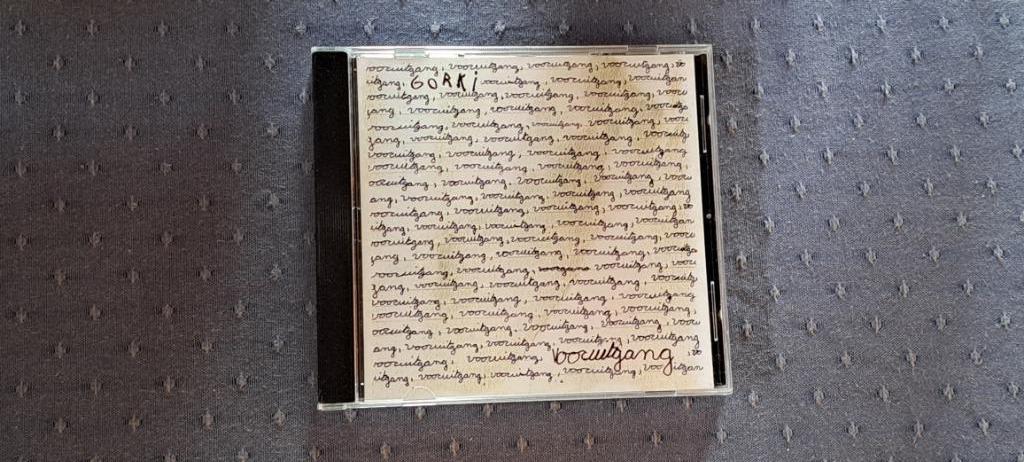 vooruitgang, vooruitgang, vooruitgang, vooruitgang, vo
uitgang, GORKi vooruitgang, vooruitgang, vooruitgan
vooruitgang, vooruitgang, vooruitgang, vooruitgang, vooru
gang, vooruitgang, vooruitgang, vooruitgang, vooruitga
vooruitgang, vooruitgang, vooruitgang, vooruitgang, vooru
gang, vooruitgang, vooruitgang, vooruitgang, vooruit
vooruitgang, vooruitgang, vooruitgang, vooruitgang,
vooruitgang, vooruitgang, vooruitgang, vooruitgang,
vooruitgang, vooruitgang, vooruitgang, vooruitgang, vooru
ang, vooruitgang, vooruitgang, vooruitgang, vooruitgang
vooruitgang, vooruitgang, vooruitgang, vooruitgang, vo
uitgang, vooruitgang, vooruitgang, vooruitgang, vooruitgan
vooruitgang, vooruitgang, vooruitgang, vooruitgang, vooru
gang, vooruitgang, vooruitgang, vooruitgang, vooruitga
vooruitgang, vooruitgang, vooruitgang, vooru
gang, vooruitgang, vooruitgang, vooruitgang, vooruit
vooruitgang, vooruitgang, vooruitgang, vooruitgang
vooruitgang, vooruitgang, vooruitgang, vooruitgang,
vooruitgang, vooruitgang, vooruitgang, vooruitgang, vooru
ang, vooruitgang, vooruitgang, vooruitgang, vooruitgang
vooruitgang, vooruitgang, Vooruitgang, vo
uitgang, vooruitgang, vooruitgang, vooruitgang, vooruitgan